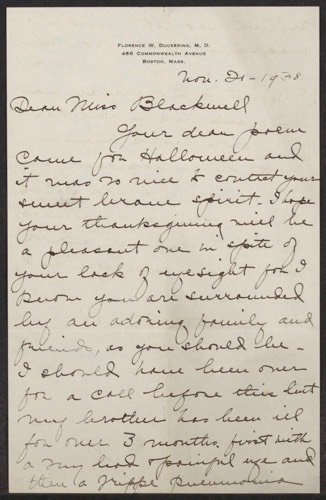 FLORENCE W. DUCKERING, M. D.
466 COMMONWEALTH AVENUE
BOSTON, MASS.
Nov. 21 - 1938
Dear Miss Blackwell
Your dear poem
came for Halloween and
it was so nice to contact your
sweet brave spirit - I hope
your thanksgiving will be
a pleasant one in spite of
your lack of eyesight for I
know you are surrounded
by an adoring family and
friends, as you should be -
I should have been over
for a call before this but
my brother has been ill
for over 3 months, first with
a very bad & painful eye and
then a Grippe pneumonia